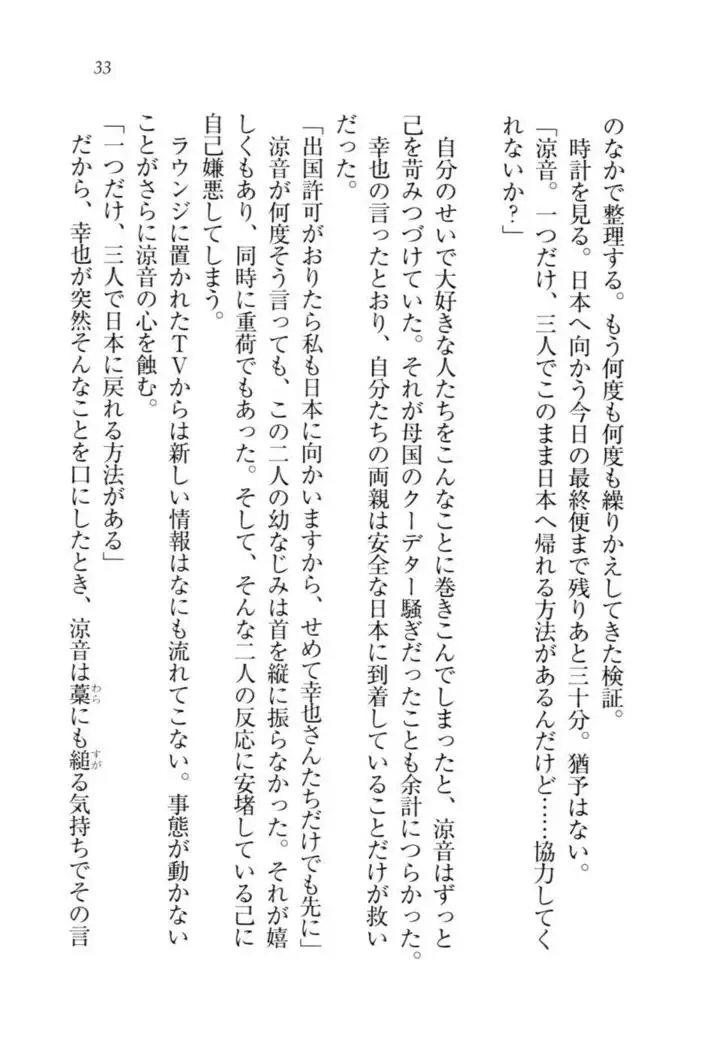 33
のなかで整理する。もう何度も何度も繰りかえしてきた検証。
時計を見る。日本へ向かう今日の最終便まで残りあと三十分。猶予はない。
「涼音。一つだけ、三人でこのまま日本へ帰れる方法があるんだけど……協力してく
れないか？」
自分のせいで大好きな人たちをこんなことに巻きこんでしまったと、涼音はずっと
己を苛みつづけていた。それが母国のクーデター騒ぎだったことも余計につらかった。
幸也の言ったとおり、自分たちの両親は安全な日本に到着していることだけが救い
だった。
「出国許可がおりたら私も日本に向かいますから、せめて幸也さんたちだけでも先に」
涼音が何度そう言っても、この二人の幼なじみは首を縦に振らなかった。それが嬉
しくもあり、同時に重荷でもあった。そして、そんな二人の反応に安堵している己に
自己嫌悪してしまう。
ラウンジに置かれたＴＶからは新しい情報はなにも流れてこない。事態が動かない
ことがさらに涼音の心を蝕む。
「一つだけ、三人で日本に戻れる方法がある」
だから、幸也が突然そんなことを口にしたとき、涼音は藁にも縋る気持ちでその言
わら
すが